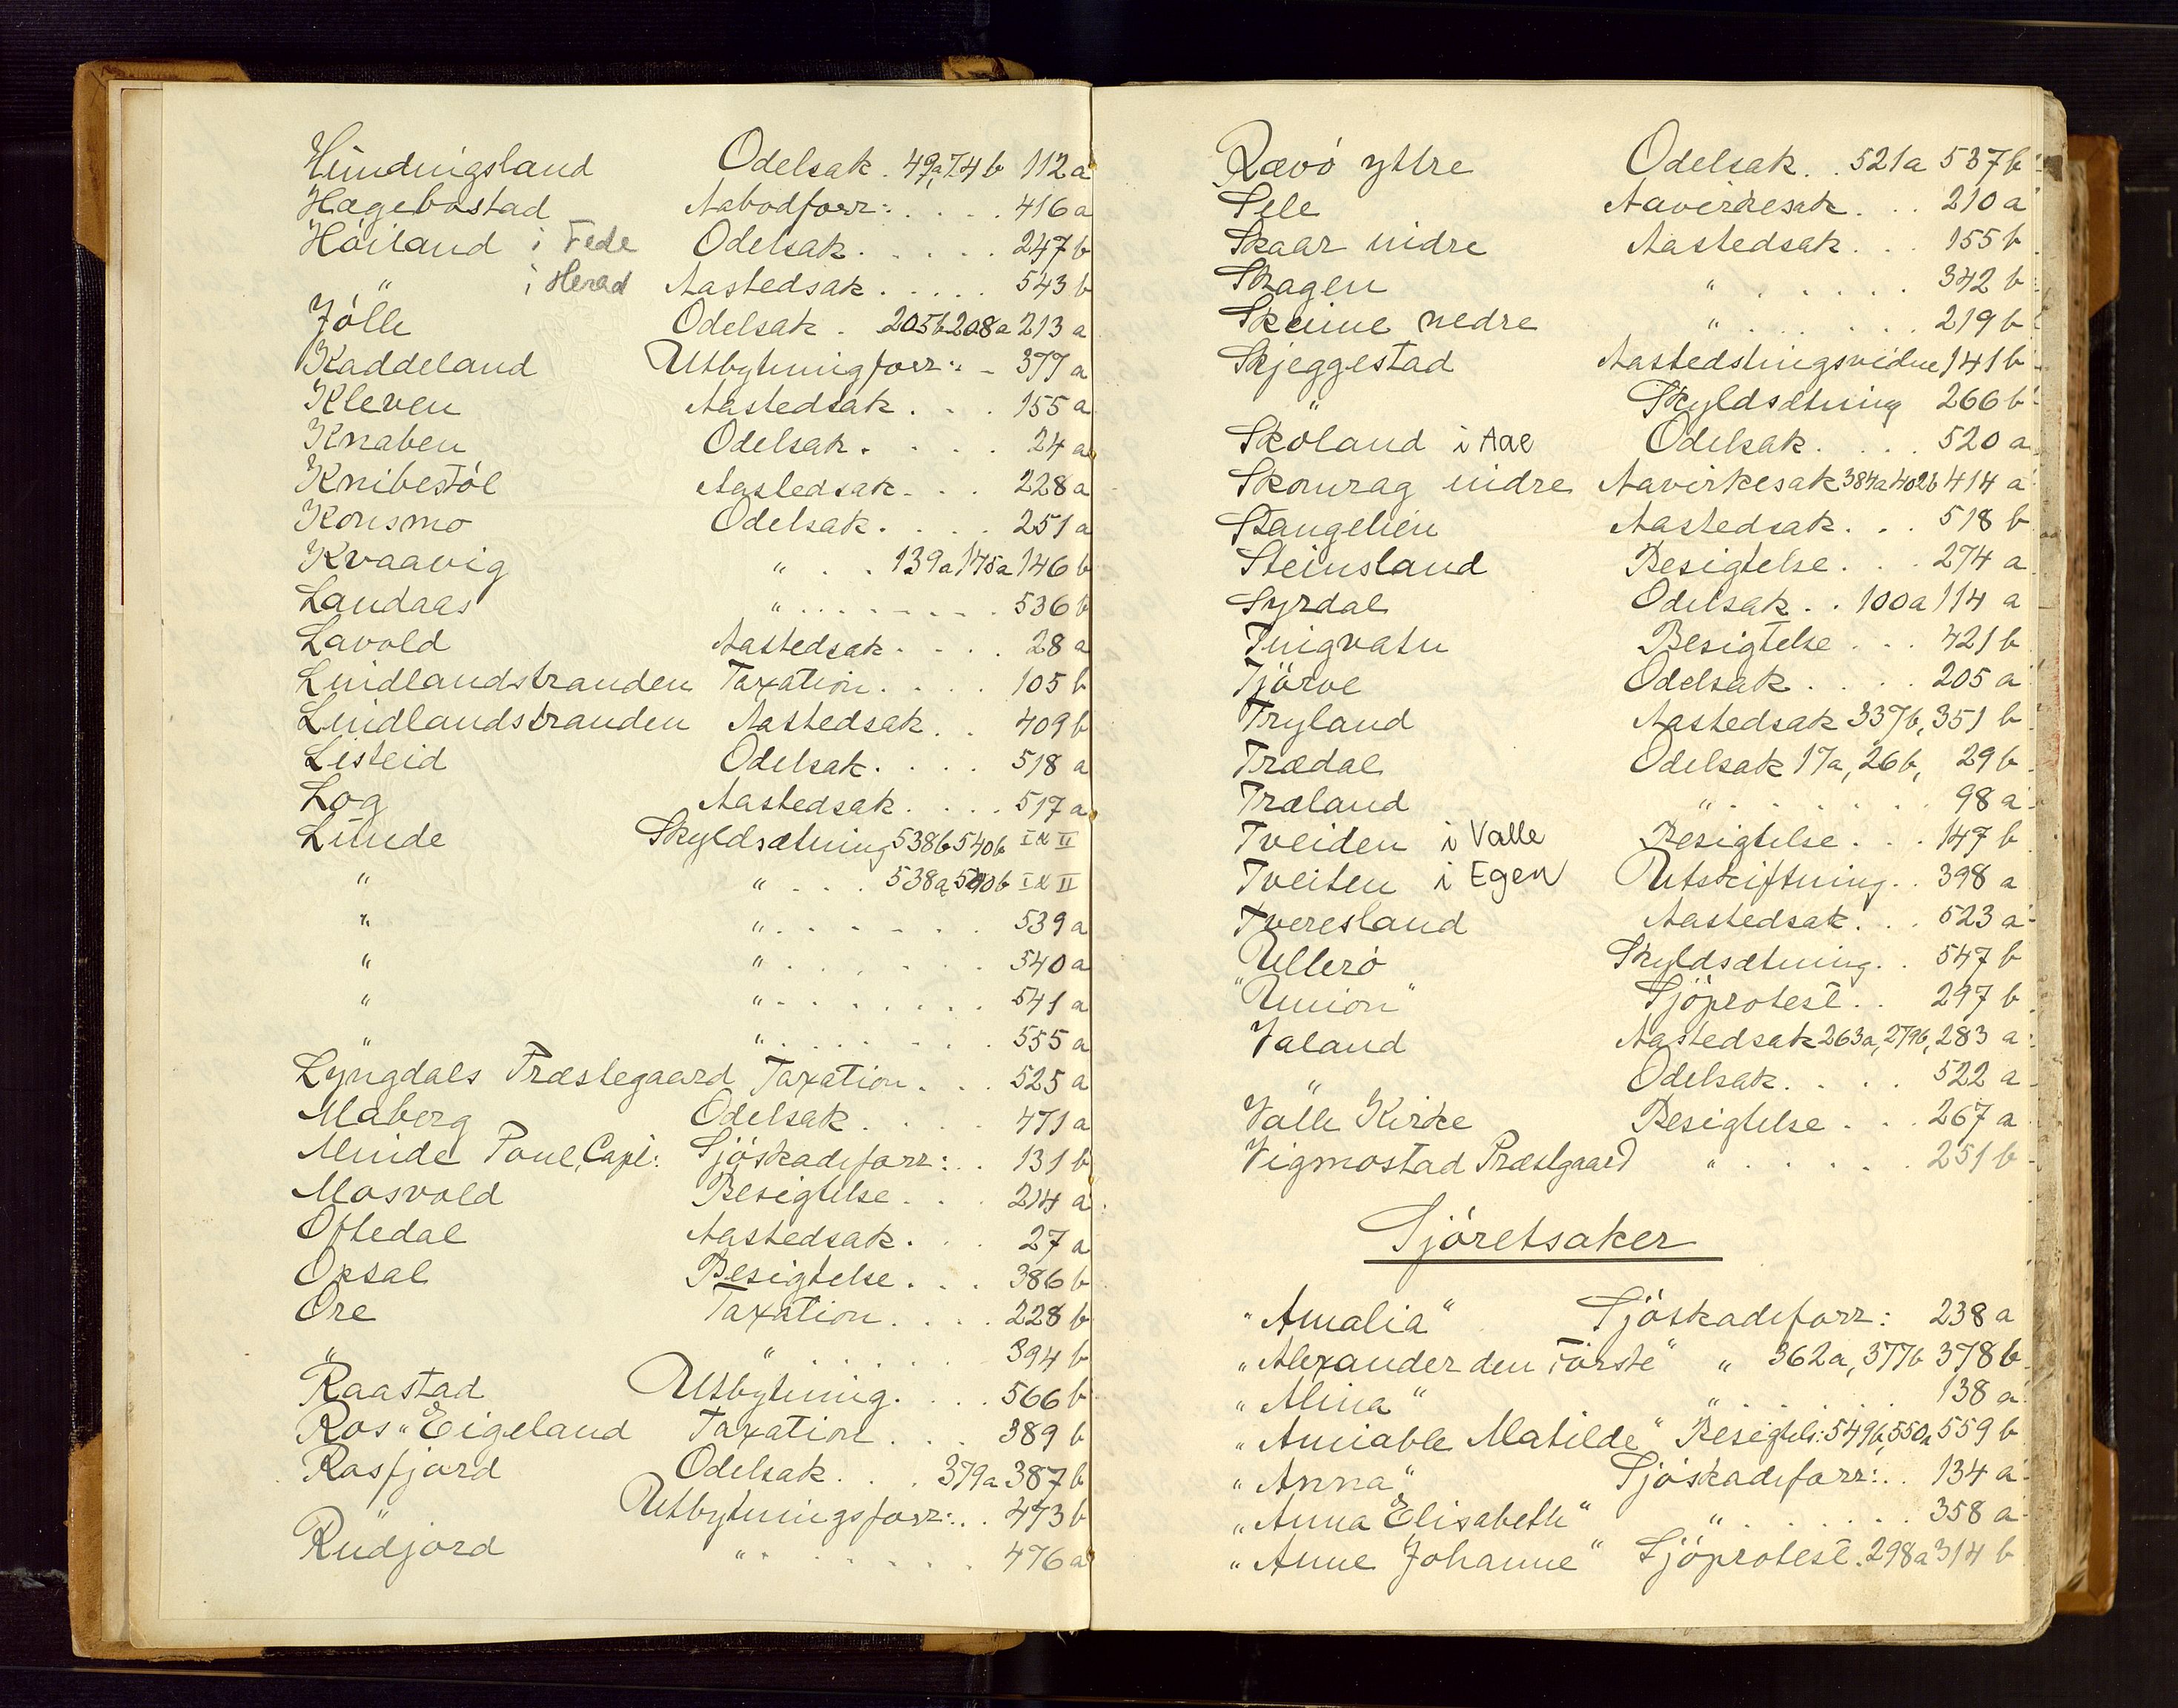 Hundingsland Odelsak. 49a, 74b 112a
Hægebostad Aabodforr: . . . . 416a
Höiland i Fede Odelsak. . . . . 247b
" i Herad Aastedsak. . . . . 543b
Jölle Odelsak. 205b 208a 213a
Kaddeland Utbytningforr: - 377a
Kleven Aastedsak. . . 155a
Knaben Odelsak. . . . 24a
Knibestöl Aastedsak. . . 228a
Konsmo Odelsak. . . . 251a
Kvaavig " . . 139a 145a 146b
Landaas " . . . . . . . 536b
Lavold Aastedsak. . . . 28a
Lindlandstranden Taxation. . . . 105b
Lindlandstranden Aastedsak. . 409b
Listeid Odelsak. . . . 518a
Log Aastedsak. . . . 517a
Lunde Skyldsætning 538b 540b I & II
" " . . . 538a, 540b I & II
" " . . . . . . 539a
" " . . . . . . 540a
" " . . . . . . 541a
" " . . . . . . 555a
Lyngdals Præstegaard Taxation. . . 525a
Maberg Odelsak. . . . 471a
Minide Poul, Capt: Sjöskadeforr: . . 131b
Mosvold Besigtelse. . . 214a
Oftedal Aastedsak. . . 27a
Opsal Besigtelse. . . 386b
Ore Taxation. . . . 228b
" " . . . . . 394b
Raastad Utbytning. . . . 566b
Ros "Eigeland Taxation. . . 389b
Rosfjord Odelsak. . . 379a 387b
" Utbytningsforr: . . 473b
Rudjord " . . . . . . 476a
Rævö yttre Odelsak. . 521a 537b
Sele Aavirkesak. . . 210a
Skaar indre Aastedsak. . . 155b
Skagen " . . . . . . 342b
Skeime nedre " . . . . . . 219b
Skjeggestad Aastedstingsvidne 141b
" Skyldsætning 266b
Skoland i Aae Odelsak. . . . 520a
Skomrag indre Aavirkesak 384a 402b 414a
Stangelien Aastedsak. . . 518b
Steinsland Besigtelse. . . 274a
Syrdal Odelsak. . 100a 114a
Tingvatn Besigtelse. . . 421b
Tjörve Odelsak. . . . 205a
Tryland Aastedsak 337b, 351b
Trædal Odelsak 17a, 26b, 29b
Træland " . . . . . . 98a
Tveiden i Valle Besigtelse. . . 147b
Tveiten i Egen Utskiftning. . 398a
Tveresland Aastedsak. . . 523a
Ullerö Skyldsætning. . 547b
"Union" Sjöprotest. . 297b
Valand Aastedsak 263a, 279b, 283a
" Odelsak. . . . 522a
Valle Kirke Besigtelse. . . 267a
Vigmostad Præstgaard " . . . . . 251b
Sjöretsaker
"Amalia" Sjöskadeforr: 238a
"Alexander den Förste" " 362a, 377b 378b
"Alina" " . . . . 138a
"Amiable Matilde" Besigtels: 549b, 550a 559b
"Anna" Sjöskadeforr: . . 134a
"Anna Elisabeth" " . . . . . . 358a
"Anne Johanne" Sjöprotest. 298a 314b